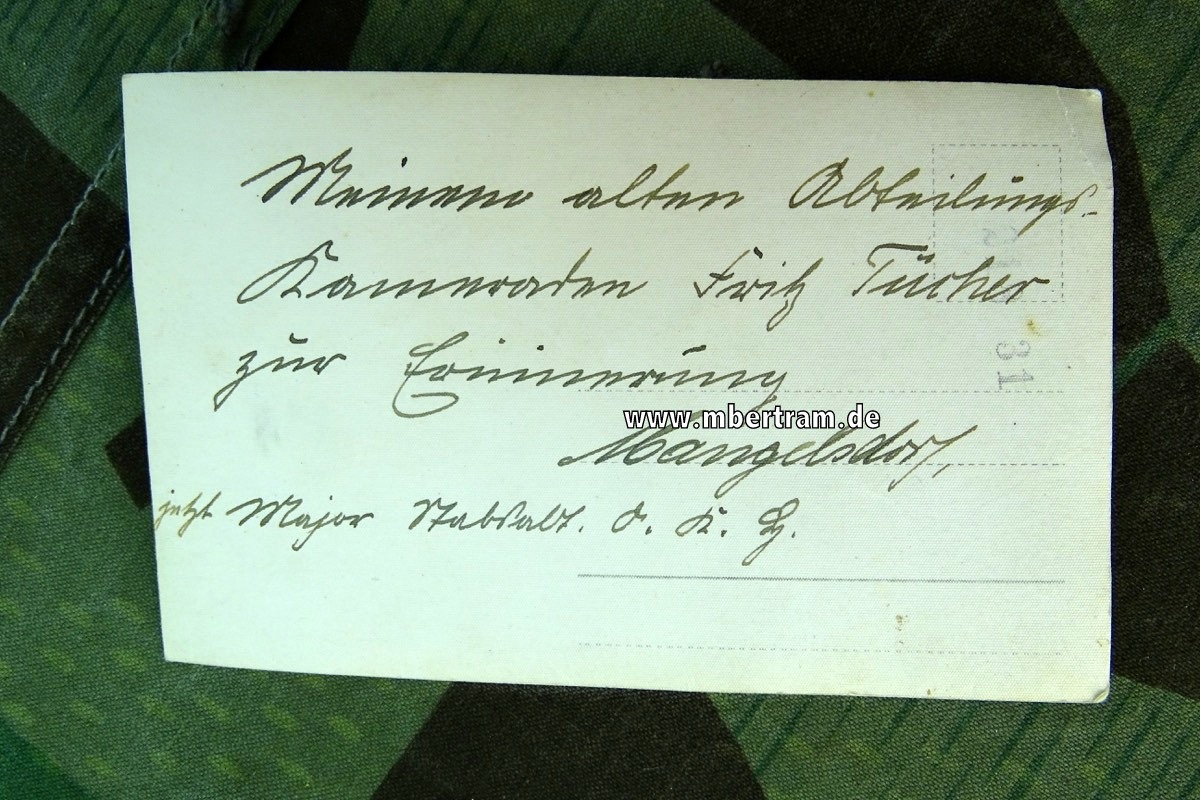 Meinem alten Abteilungs-
Kameraden Fritz Tücher
zur Erinnerung
31
www.mbertram.de
Mangelsdorf,
jetzt Major Stabsabt. O. K. H.